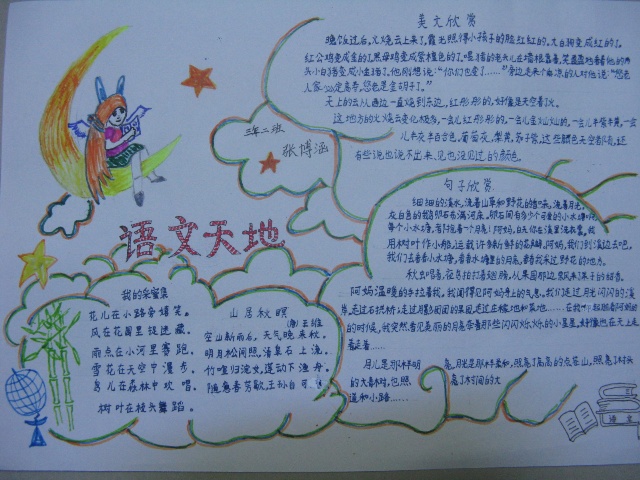 美文欣赏
晚饭过后，火烧云上来了，霞光照得小孩子的脸红红的。大白狗变成红的了。
红公鸡变成金的了。黑母鸡变成紫檀色的了。喂猪的老头儿在墙根靠着，笑盈盈地看着他的两
头小白猪变成小金猪了。他刚想说："你们也变了……"旁边走来个乘凉的人对他说："您老
人家必定高寿，您老是金胡子了。"
天上的云从西边一直烧到东边，红彤彤的，好像是天空着了火。
这地方的火烧云变化极多，一会儿红彤彤的，一会儿金灿灿的，一会儿半紫半黄，一会
儿半灰半百合色。葡萄灰，梨黄，茄子紫，这些颜色天空都有，还
有些说也说不出来、见也没见过的颜色。
三年二班
张博涵
句子欣赏
细细的溪水，流着山草和野花的香味，流着月光。
灰白色的鹅卵石布满河床。卵石间有多少可爱的小水塘啊，
每个小水塘，都抱着一个月亮！阿妈，白天你在溪里洗衣裳，我
用树叶作小船，运载许多新鲜的花瓣。阿妈，我们到溪边去吧，
我们去看看小水塘，看看水塘里的月亮，看看我采过野花的地方。
秋虫唱着，夜鸟拍打着翅膀，从果园那边飘来果子的甜香。
阿妈温暖的手拉着我，我闻得见阿妈身上的气息。我们走过月光闪闪的溪
岸，走过石拱桥；走过月影团团的果园，走过庄稼地和菜地……在我
的时候，我突然看见美丽的月亮牵着那些闪闪烁烁的小星星，好像她在天上走
着，走着……
月儿是那样明亮，月光是那样柔和，照亮了高高的点苍山，照亮了村头
的大青树，也照亮了村间的大
道和小路……
语文天地
我的采蜜集
花儿在小路旁嬉笑。
风在花园里捉迷藏。
雨点在小河里赛跑。
雪花在天空中漫步。
鸟儿在森林中欢唱。
树叶在枝头舞蹈。
山居秋暝
(唐)王维
空山新雨后，天气晚来秋。
明月松间照，清泉石上流。
竹喧归浣女，莲动下渔舟。
随意春芳歇，王孙自可
语文